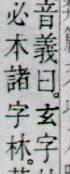 音義曰。玄字
必木諸字林。